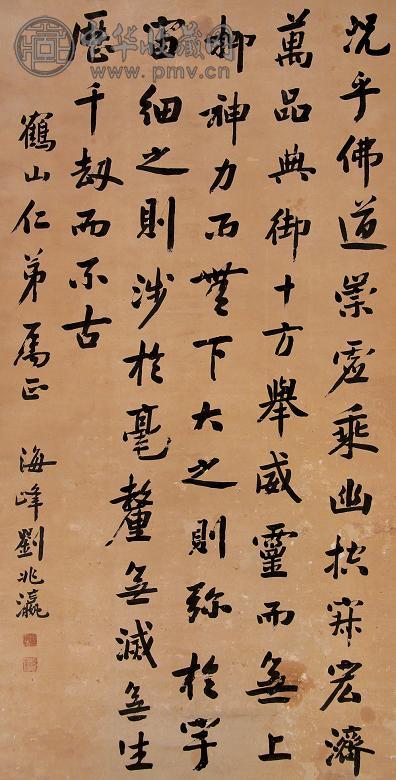 中华收藏网
www.pmv.cn
况乎佛道崇虛乘幽控寂宏濟
萬品典御十方舉威靈而無上
抑神力而無下大之則弥於宇
宙細之則涉於毫釐無滅無生
歷千劫而不古
鶴山仁弟属正 海峰劉兆瀛